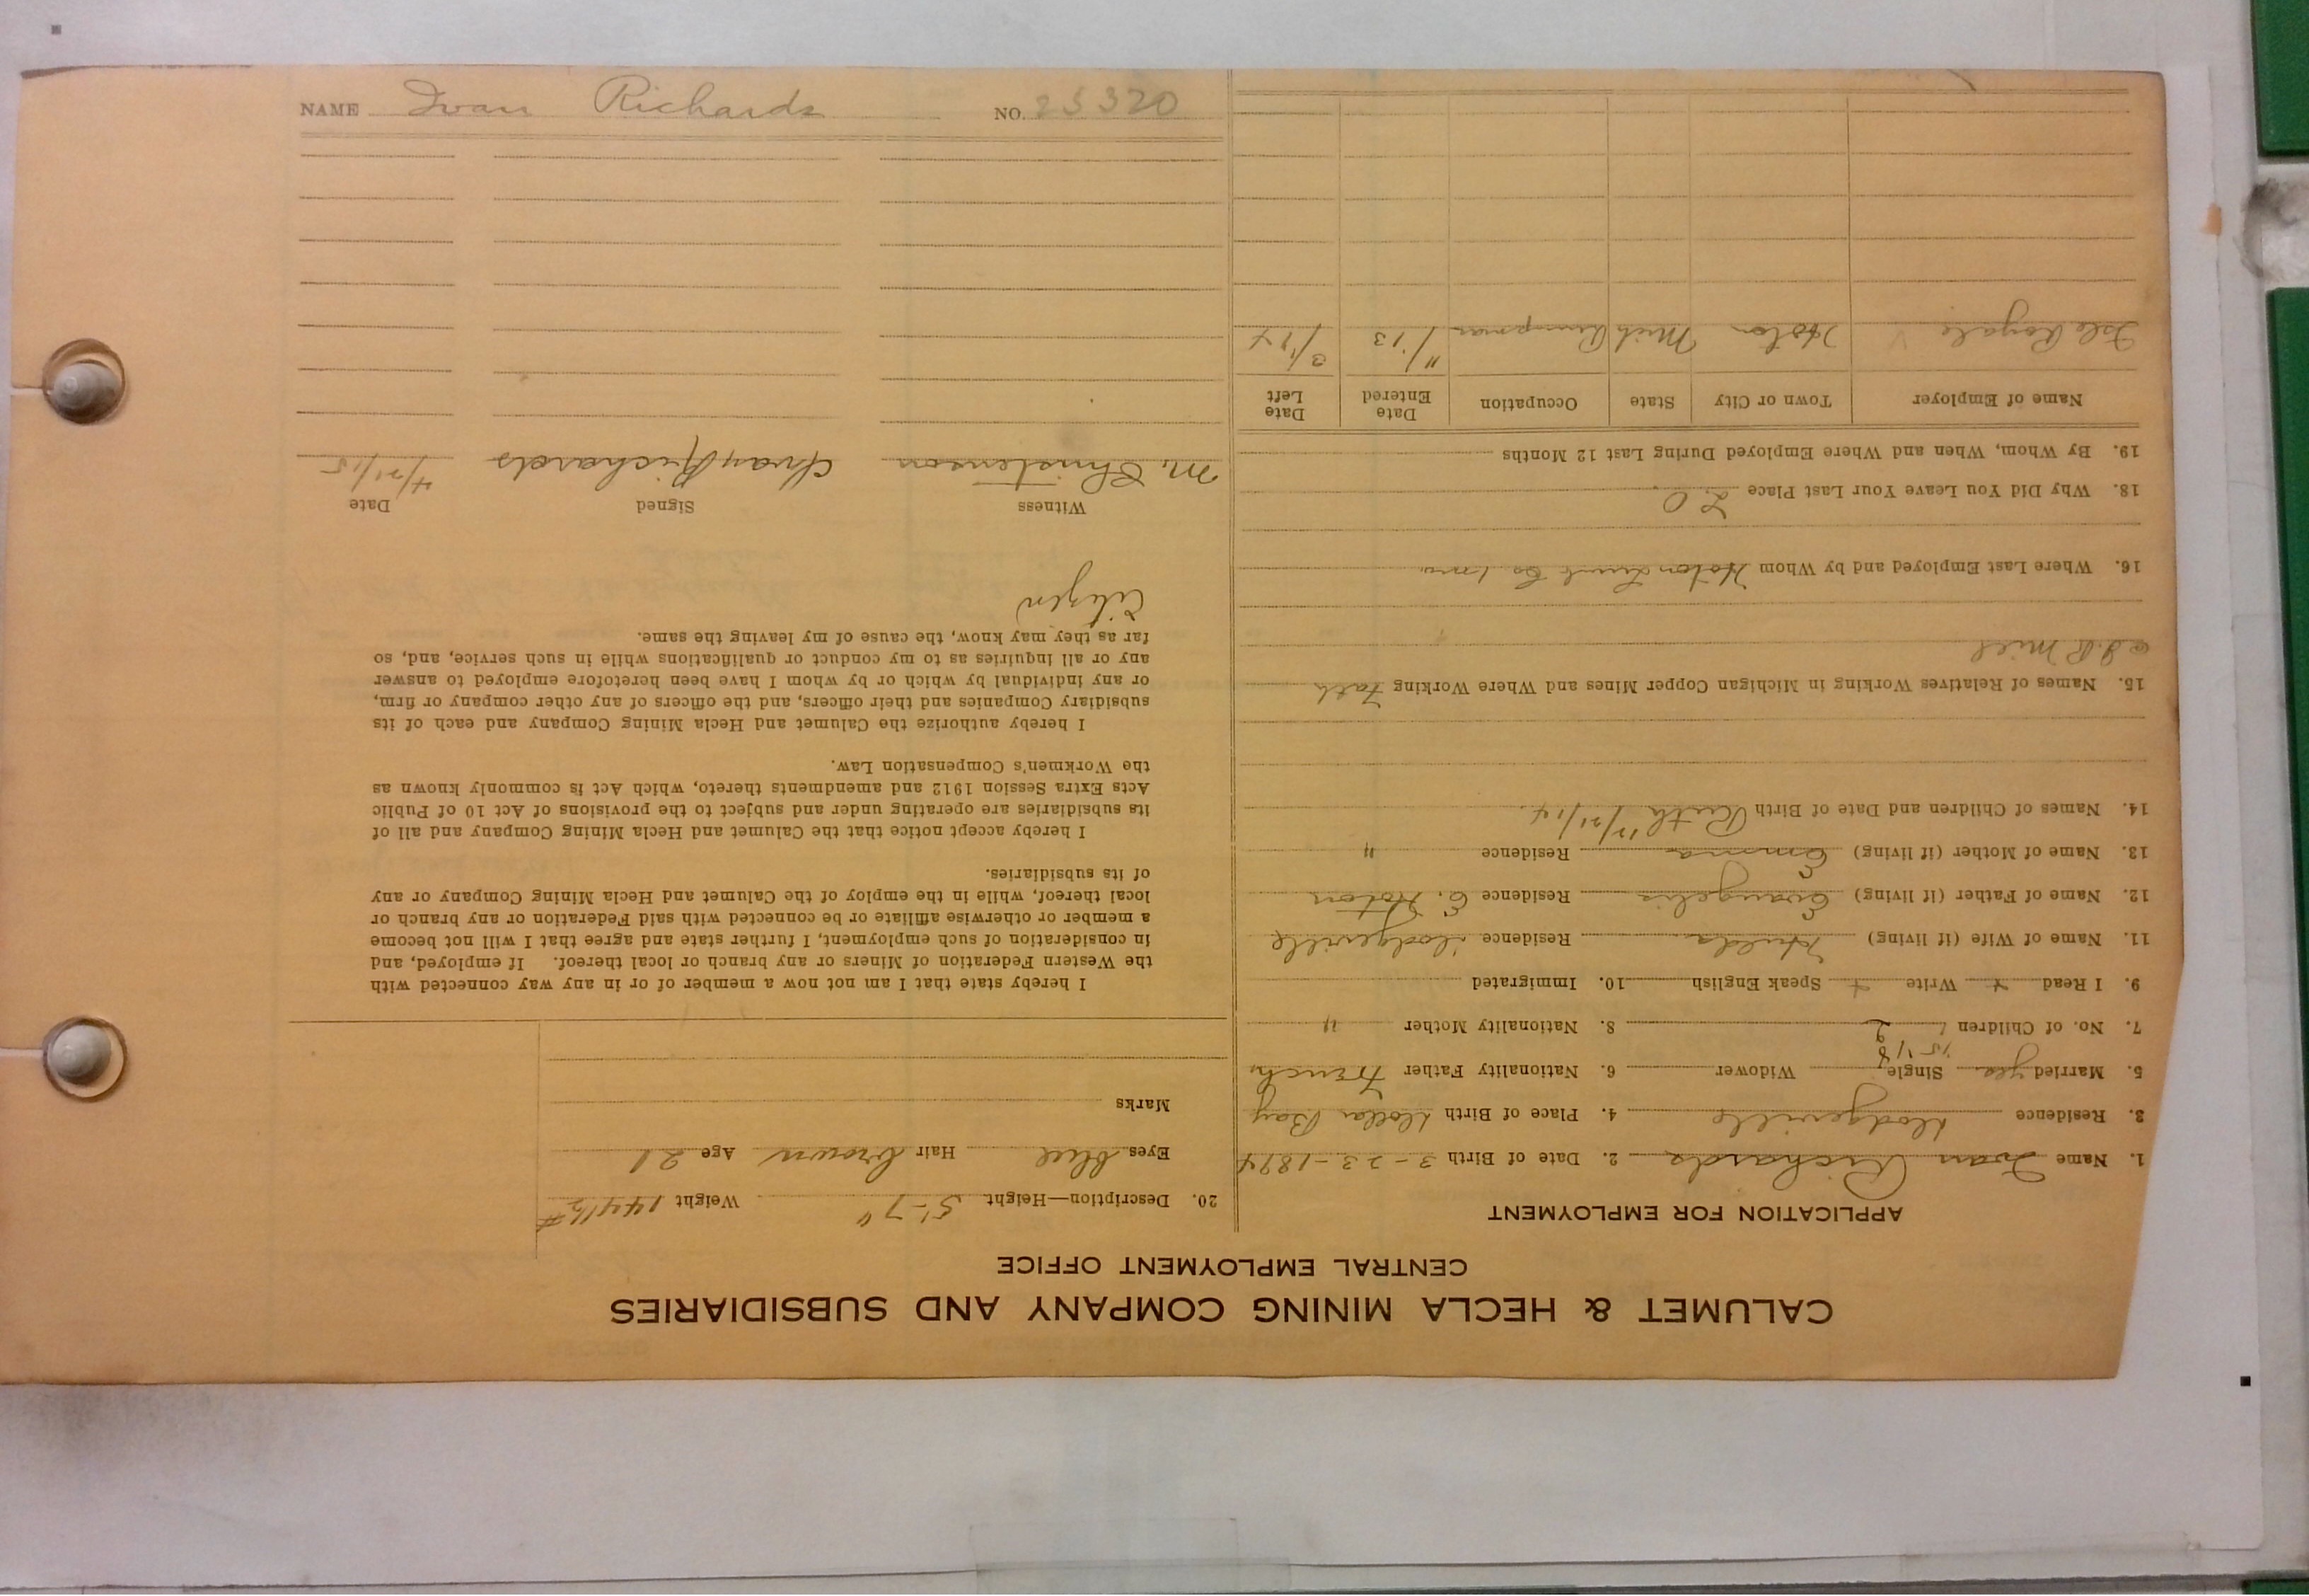 CALUMET & HECLA MINING COMPANY AND SUBSIDIARIES
CENTRAL EMPLOYMENT OFFICE
APPLICATION FOR EMPLOYMENT
1. Name Ivan Richards 2. Date of Birth 3-23-1894
3. Residence Dodgeville 4. Place of Birth Dollar Bay
5. Married yes Single Widower 6. Nationality Father French
7. No. of Children 1 8. Nationality Mother "
9. I Read + Write + Speak English 10. Immigrated
11. Name of Wife (if living) Hilda Residence Dodgeville
12. Name of Father (if living) Evangelis Residence E. Hoton
13. Name of Mother (if living) Emma Residence "
14. Names of Children and Date of Birth Ruth 12/21/14
15. Names of Relatives Working in Michigan Copper Mines and Where Working Fath
@ I.R. Mill
16. Where Last Employed and by Whom Hoton Lumb Co 1 mo
18. Why Did You Leave Your Last Place L O
19. By Whom, When and Where Employed During Last 12 Months
Name of Employer Town or City State Occupation Date Entered Date Left
Isle Royale Hoton Mich 11/13 3/14
20. Description—Height 5'-7" Weight 144½ #
Eyes blue Hair brown Age 21
Marks
I hereby state that I am not now a member of or in any way connected with
the Western Federation of Miners or any branch or local thereof. If employed, and
in consideration of such employment, I further state and agree that I will not become
a member or otherwise affiliate or be connected with said Federation or any branch or
local thereof, while in the employ of the Calumet and Hecla Mining Company or any
of its subsidiaries.
I hereby accept notice that the Calumet and Hecla Mining Company and all of
its subsidiaries are operating under and subject to the provisions of Act 10 of Public
Acts Extra Session 1912 and amendments thereto, which Act is commonly known as
the Workmen's Compensation Law.
I hereby authorize the Calumet and Hecla Mining Company and each of its
subsidiary Companies and their officers, and the officers of any other company or firm,
or any individual by which or by whom I have been heretofore employed to answer
any or all inquiries as to my conduct or qualifications while in such service, and, so
far as they may know, the cause of my leaving the same.
Citizen
Witness Signed Date
M. Christenson Ivan Richards 4/21/15
NAME Ivan Richards NO. 25320